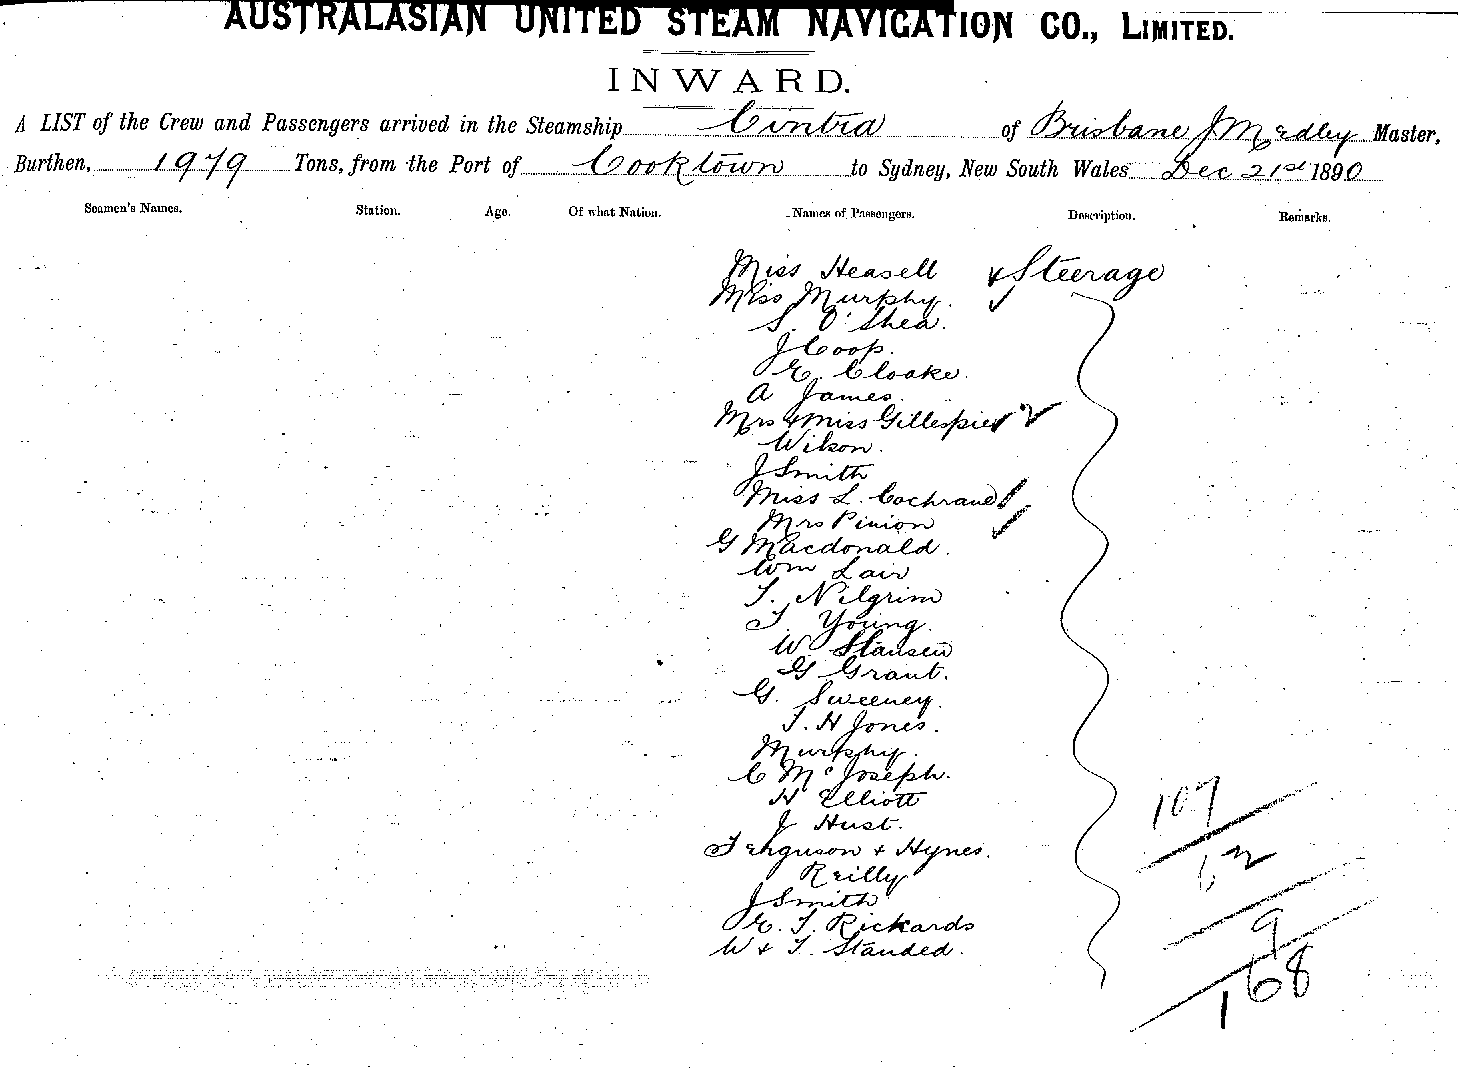 AUSTRALASIAN UNITED STEAM NAVIGATION CO., LIMITED.
INWARD.
A LIST of the Crew and Passengers arrived in the Steamship Cintra of Brisbane J Medley Master,
Burthen, 1979 Tons, from the Port of Cooktown to Sydney, New South Wales Dec 21st 1890
Seamen's Names. Station. Age. Of what Nation. Names of Passengers. Description. Remarks.
Miss Heasell Steerage
Miss Murphy.
S. O'Shea.
J Coop.
E. Cloake.
A James.
Mrs & Miss Gillespie 2
Wilson.
J Smith
Miss L. Cochrane
Mrs Pinion
G Macdonald.
Wm Lair
T. Nilgrim
T Young.
W Stansen
G Grant.
G. Sweeney.
T. H Jones.
Murphy.
C McJoseph.
H Elliott
J Hust.
Ferguson & Hynes.
Reilly
J Smith
E. T. Rickards
W & T. Standed.
107
62
9
168